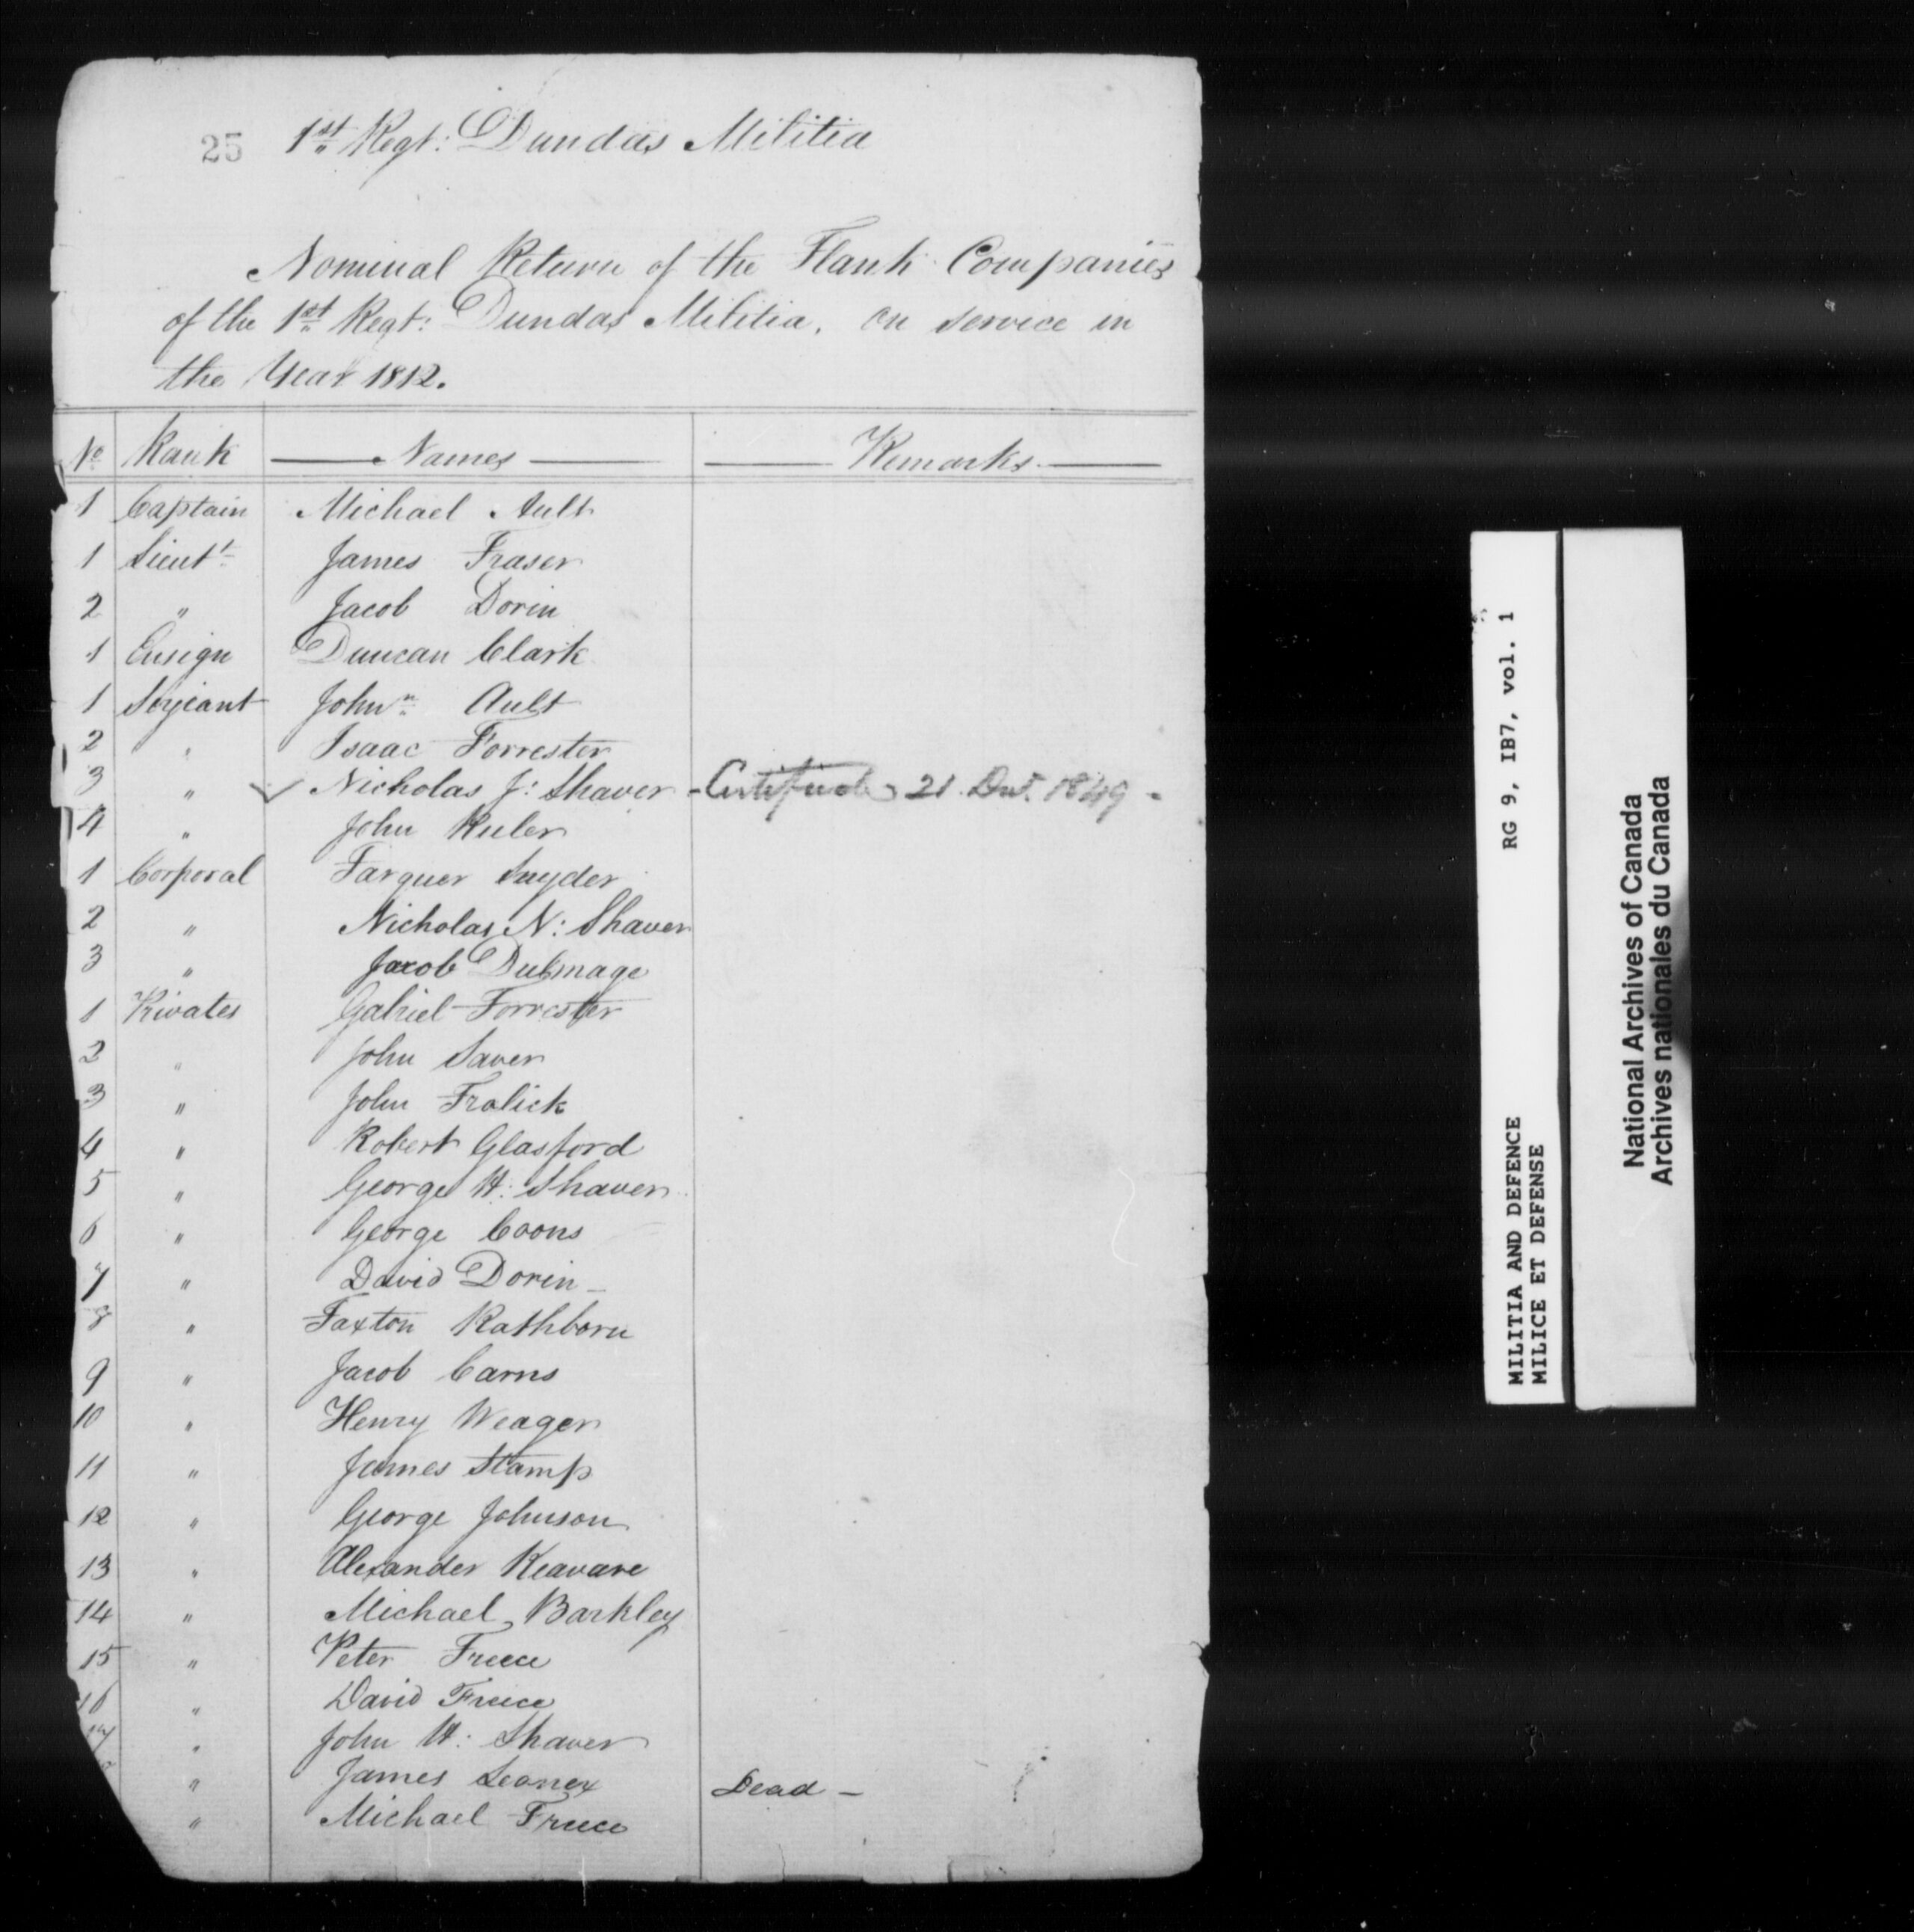 25 1st Regt: Dundas Militia
Nominal Return of the Flank Companies
of the 1st Regt: Dundas Militia, on service in
the Year 1812.
No Rank Names Remarks
1 Captain Michael Ault
1 Lieutt James Fraser
2 " Jacob Dorin
1 Ensign Duncan Clark
1 Serjeant Johnn Ault
2 " Isaac Forrester
3 " ✓ Nicholas J: Shaver - Certificate 21 Dec. 1849 -
4 " John Kuler
1 Corporal Farquer Snyder
2 " Nicholas N: Shaver
3 " Jacob Dulmage
1 Privates Gabriel Forrester
2 " John Saver
3 " John Fralick
4 " Robert Glasford
5 " George H: Shaver
6 " George Coons
7 " David Dorin
8 " Faxton Rathborn
9 " Jacob Carns
10 " Henry Weager
11 " James Stamp
12 " George Johnson
13 " Alexander Keavare
14 " Michael Barkley
15 " Peter Freece
16 " David Freece
17 " John H: Shaver
" James Leonex Dead -
" Michael Freece
MILITIA AND DEFENCE RG 9, IB7, vol. 1
MILICE ET DEFENSE
National Archives of Canada
Archives nationales du Canada